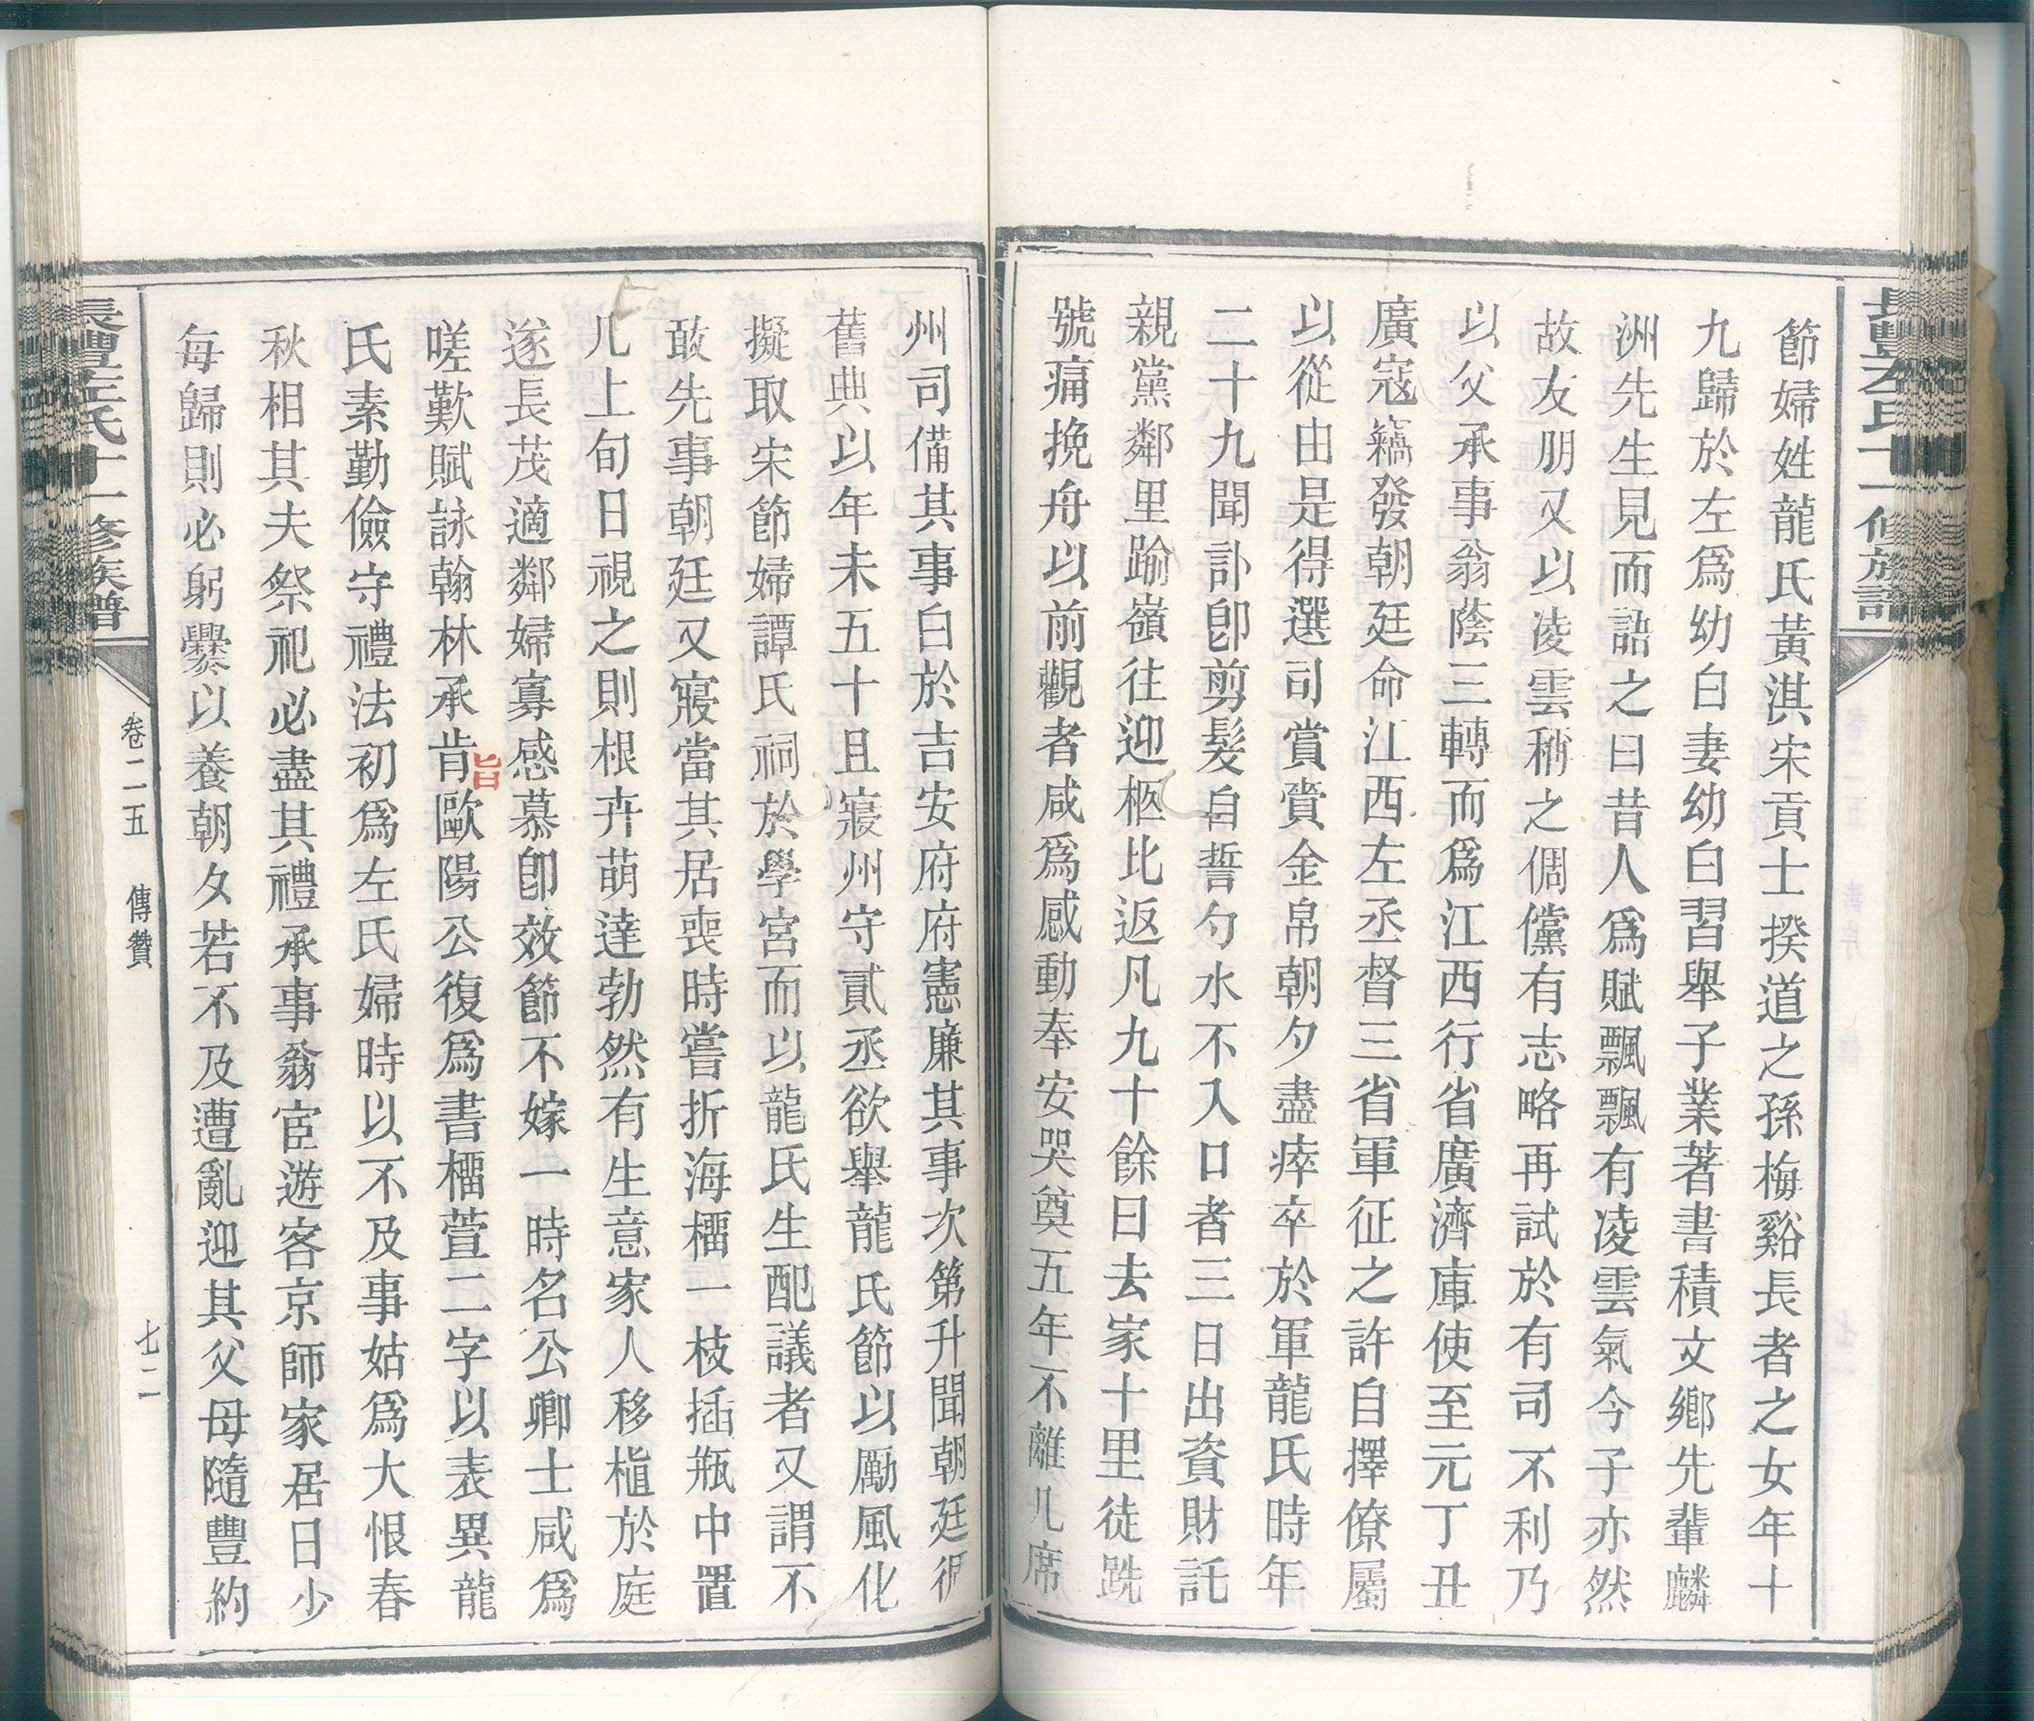 長豐左氏十一修族譜
節婦姓龍氏黃淇宋貢士揆道之孫梅谿長者之女年十
九歸於左爲幼白妻幼白習舉子業著書積文鄉先輩麟
洲先生見而語之曰昔人爲賦飄飄有凌雲氣今子亦然
故友朋又以凌雲稱之倜儻有志略再試於有司不利乃
以父承事翁蔭三轉而爲江西行省廣濟庫使至元丁丑
廣寇竊發朝廷命江西左丞督三省軍征之許自擇僚屬
以從由是得選司賞賚金帛朝夕盡瘁卒於軍龍氏時年
二十九聞訃卽剪髮自誓勺水不入口者三日出資財託
親黨鄰里踰嶺往迎柩比返凡九十餘日去家十里徒跣
號痛挽舟以前觀者咸爲感動奉安哭奠五年不離几席
州司備其事白於吉安府府憲廉其事次第升聞朝廷循
舊典以年未五十且寢州守貳丞欲舉龍氏節以勵風化
擬取宋節婦譚氏祠於學宮而以龍氏生配議者又謂不
敢先事朝廷又寢當其居喪時嘗折海榴一枝插瓶中置
几上旬日視之則根卉萌達勃然有生意家人移植於庭
遂長茂適鄰婦寡感慕卽效節不嫁一時名公卿士咸爲
嗟歎賦詠翰林承肯歐陽公復爲書榴萱二字以表異龍
旨
氏素勤儉守禮法初爲左氏婦時以不及事姑爲大恨春
秋相其夫祭祀必盡其禮承事翁宦遊客京師家居日少
每歸則必躬爨以養朝夕若不及遭亂迎其父母隨豐約
長豐左氏十一修族譜
卷二五 傳贊
七二